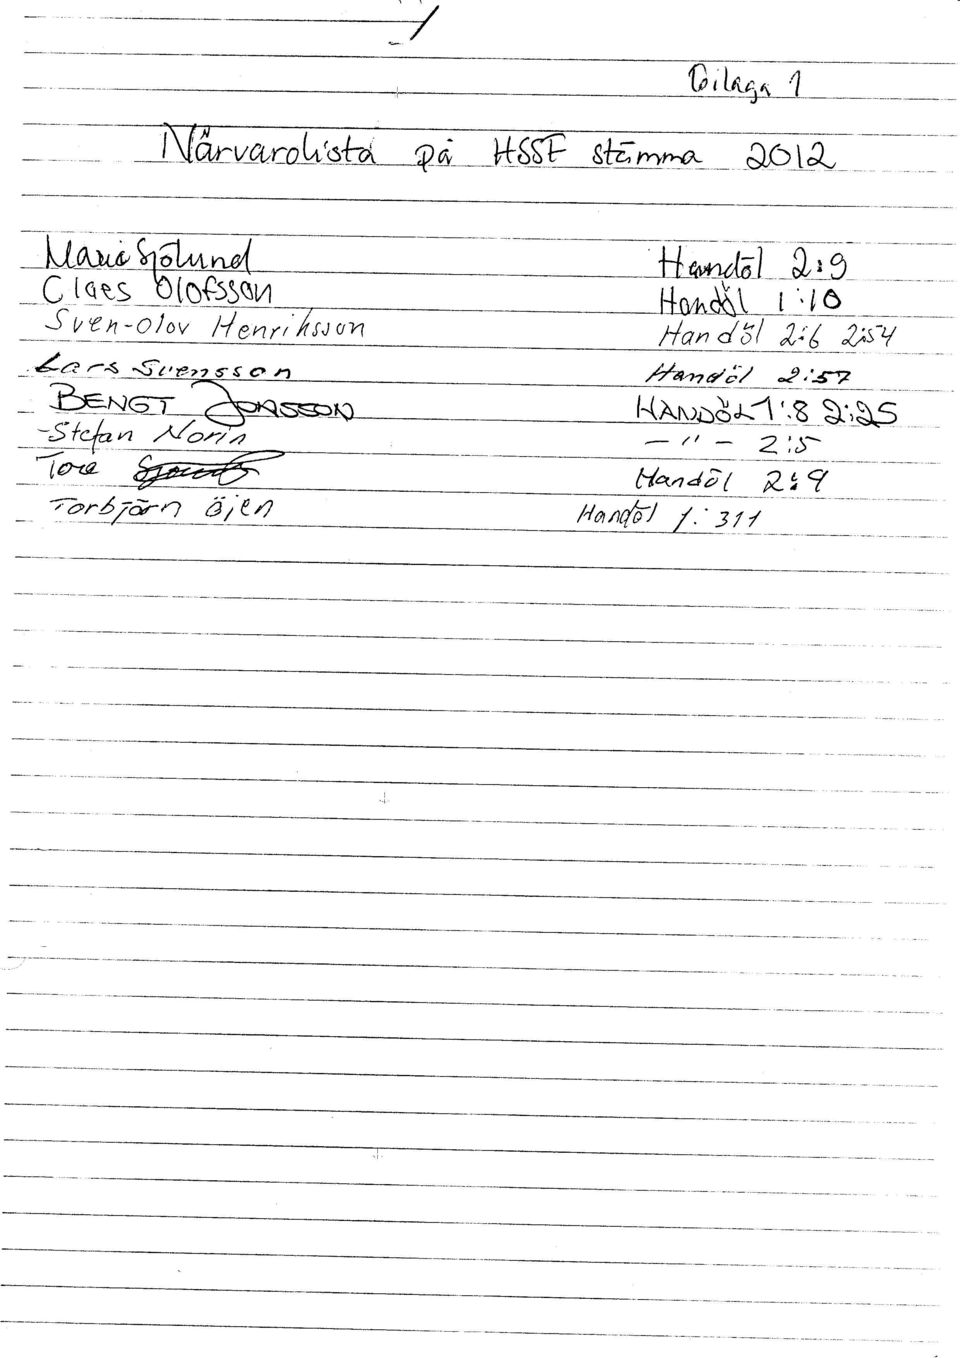 Bilaga 1
Närvarolista på HSSF stämma 2012
Marie Sjölund Handöl 2:9
Claes Olofsson Handöl 1:10
Sven-Olov Henriksson Handöl 2:6 2:54
Lars Svensson Handöl 2:57
BENGT JONSSON HANDÖL 1:8 2:25
-Stefan Norin — " — 2:5
Tore Handöl 2:9
Torbjörn Öjen Handöl 1:311